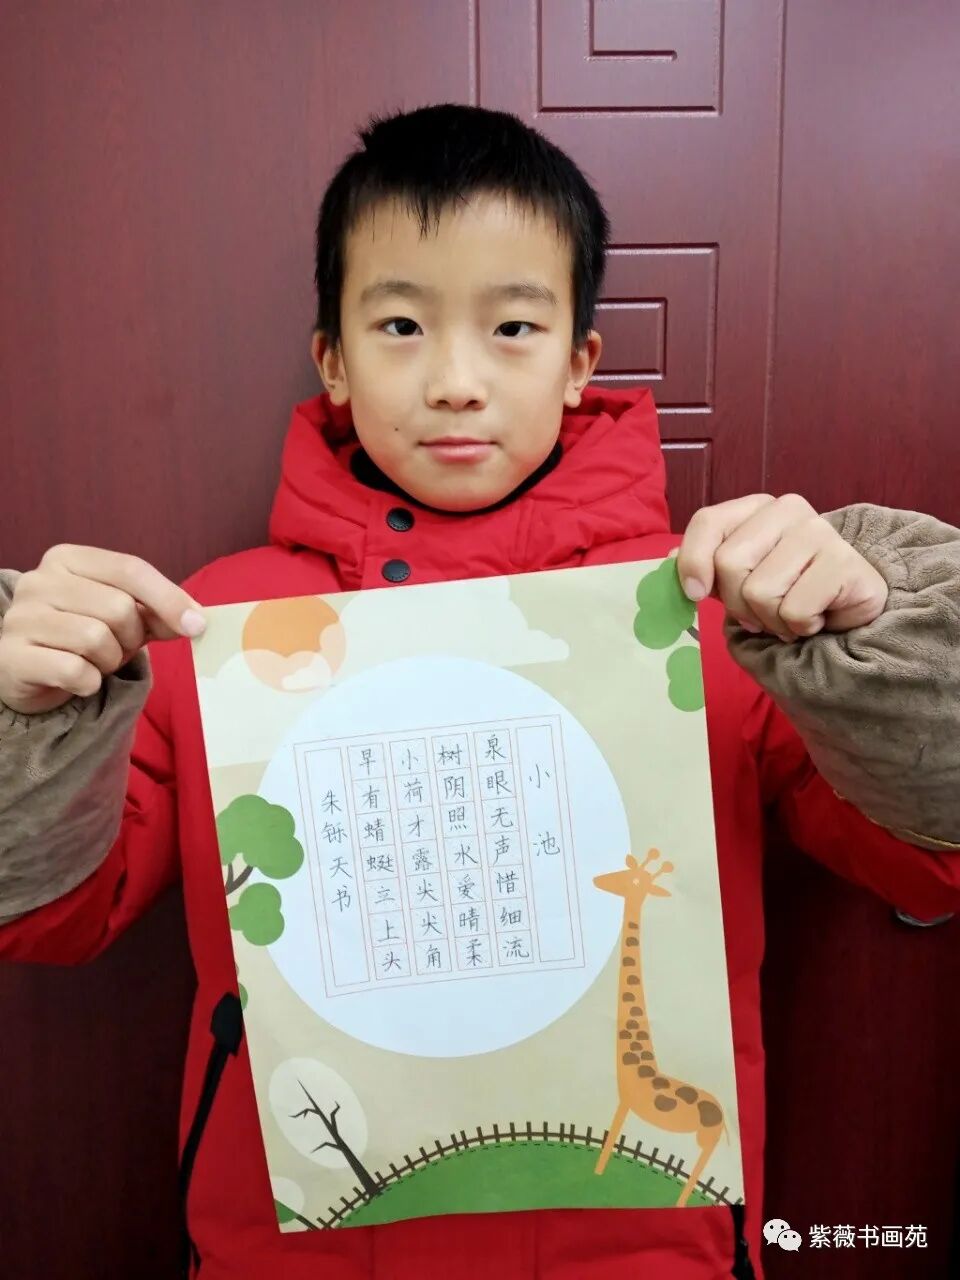 小池
泉眼无声惜细流
树阴照水爱晴柔
小荷才露尖尖角
早有蜻蜓立上头
朱铄天书
紫薇书画苑